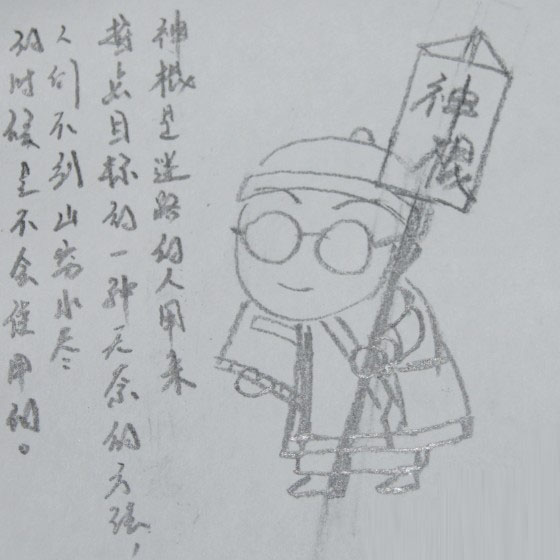 神機是迷路的人用来
接点目标的一种无奈的方法，
人们不到山穷水尽
的时候是不会使用的。
神機